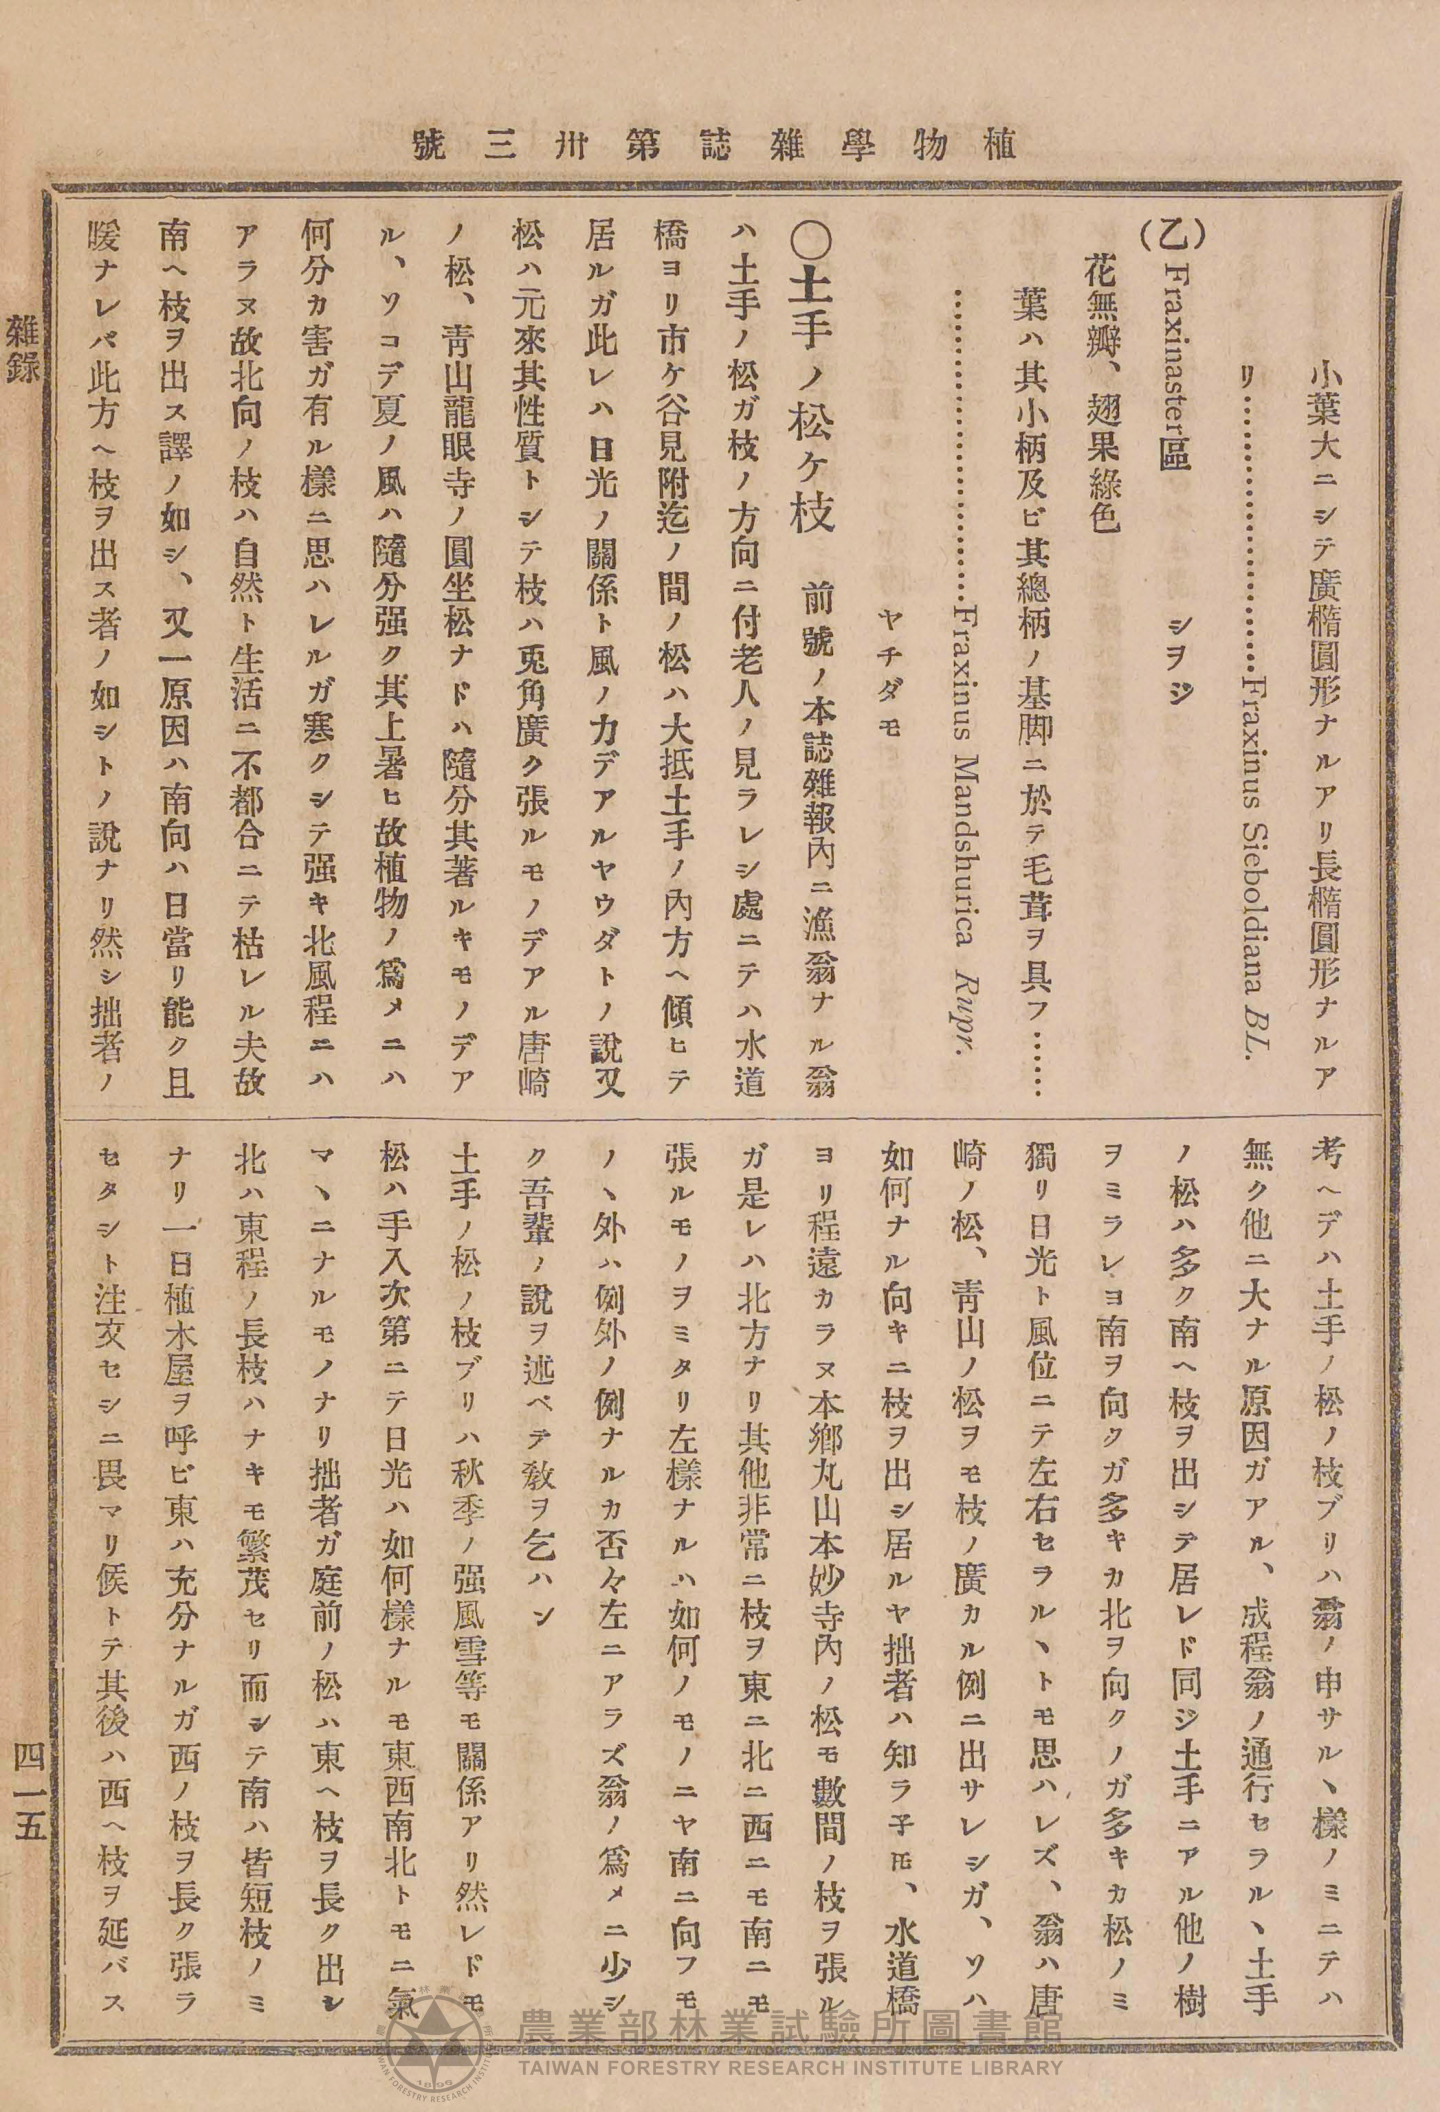 植物學雜誌第卅三號
小葉大ニシテ廣橢圓形ナルアリ長橢圓形ナルア
リ……………………Fraxinus Sieboldiana BL.
(乙)Fraxinaster區　シヲジ
花無瓣、翅果綠色
葉ハ其小柄及ビ其總柄ノ基脚ニ於テ毛茸ヲ具フ……
……………………Fraxinus Mandshurica Rupr.
ヤチダモ
〇土手ノ松ケ枝　前號ノ本誌雜報內ニ漁翁ナル翁
ハ土手ノ松ガ枝ノ方向ニ付老人ノ見ラレシ處ニテハ水道
橋ヨリ市ケ谷見附迄ノ間ノ松ハ大抵土手ノ內方ヘ傾ヒテ
居ルガ此レハ日光ノ關係ト風ノ力デアルヤウダトノ說又
松ハ元來其性質トシテ枝ハ兎角廣ク張ルモノデアル唐崎
ノ松、靑山龍眼寺ノ圓坐松ナドハ隨分其著ルキモノデア
ル、ソコデ夏ノ風ハ隨分强ク其上暑ヒ故植物ノ爲メニハ
何分カ害ガ有ル樣ニ思ハレルガ寒クシテ强キ北風程ニハ
アラヌ故北向ノ枝ハ自然ト生活ニ不都合ニテ枯レル夫故
南ヘ枝ヲ出ス譯ノ如シ、又一原因ハ南向ハ日當リ能ク且
暖ナレバ此方ヘ枝ヲ出ス者ノ如シトノ說ナリ然シ拙者ノ
考ヘデハ土手ノ松ノ枝ブリハ翁ノ申サルヽ樣ノミニテハ
無ク他ニ大ナル原因ガアル、成程翁ノ通行セラルヽ土手
ノ松ハ多ク南ヘ枝ヲ出シテ居レド同ジ土手ニアル他ノ樹
ヲミラレヨ南ヲ向クガ多キカ北ヲ向クノガ多キカ松ノミ
獨リ日光ト風位ニテ左右セラルヽトモ思ハレズ、翁ハ唐
崎ノ松、靑山ノ松ヲモ枝ノ廣カル例ニ出サレシガ、ソハ
如何ナル向キニ枝ヲ出シ居ルヤ拙者ハ知ラ子𪜈、水道橋
ヨリ程遠カラヌ本鄉丸山本妙寺內ノ松モ數間ノ枝ヲ張ル
ガ是レハ北方ナリ其他非常ニ枝ヲ東ニ北ニ西ニモ南ニモ
張ルモノヲミタリ左樣ナルハ如何ノモノニヤ南ニ向フモ
ノヽ外ハ例外ノ例ナルカ否々左ニアラズ翁ノ爲メニ少シ
ク吾輩ノ說ヲ述ベテ敎ヲ乞ハン
土手ノ松ノ枝ブリハ秋季ノ强風雪等モ關係アリ然レドモ
松ハ手入次第ニテ日光ハ如何樣ナルモ東西南北トモニ氣
マヽニナルモノナリ拙者ガ庭前ノ松ハ東ヘ枝ヲ長ク出シ
北ハ東程ノ長枝ハナキモ繁茂セリ而シテ南ハ皆短枝ノミ
ナリ一日植木屋ヲ呼ビ東ハ充分ナルガ西ノ枝ヲ長ク張ラ
セタシト注文セシニ畏マリ候トテ其後ハ西ヘ枝ヲ延バス
雜錄
四一五
農業部林業試驗所圖書館
TAIWAN FORESTRY RESEARCH INSTITUTE LIBRARY
1896
TAIWAN FORESTRY RESEARCH INSTITUTE